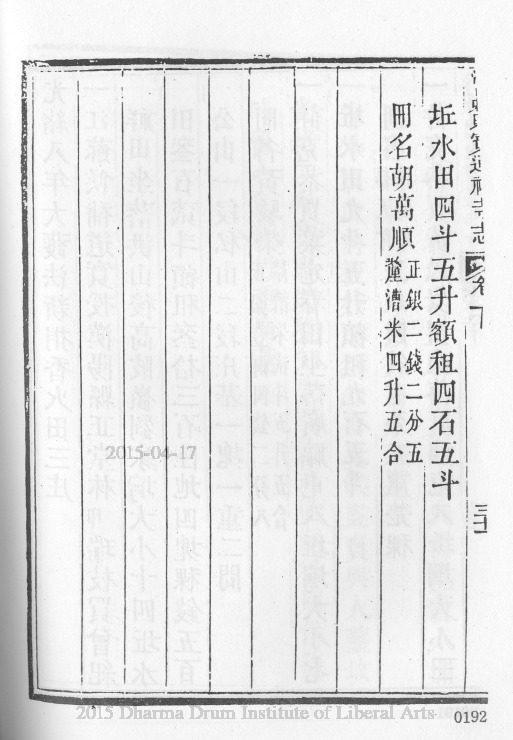 坵水田四斗五升額租四石五斗
冊名胡萬順正銀二錢二分五
釐漕米四升五合
2015-04-17
2015 Dharma Drum Institute of Liberal Arts
0192